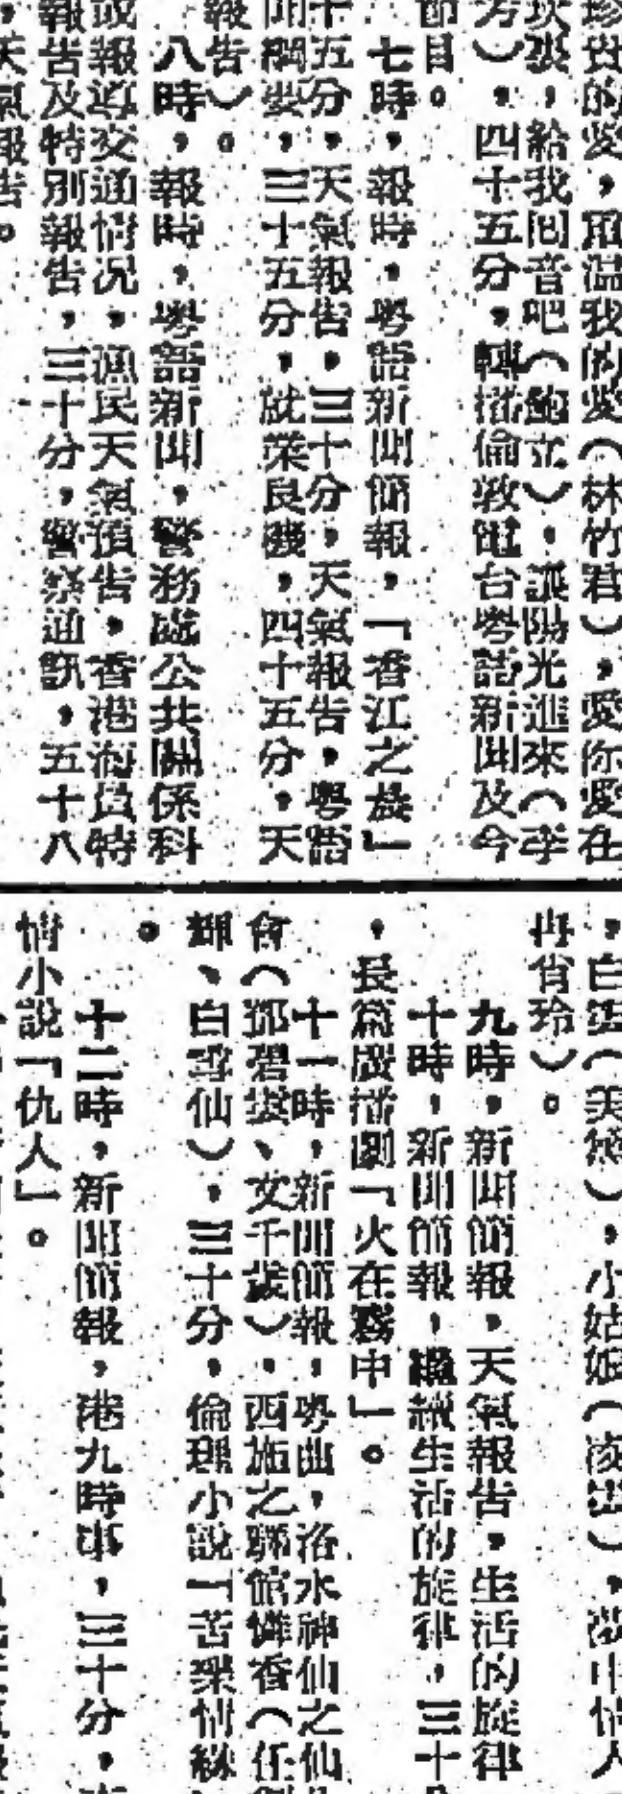 珍貴的愛，重溫我的愛（林竹君），愛你愛在
裏，給我回音吧（鮑立），讓陽光進來（李
芳），四十五分，轉播倫敦電台粵語新聞及今
節目。
七時，報時，粵語新聞簡報，「香江之旅」
十五分，天氣報告，三十分，天氣報告，粵語
聞綱要，三十五分，就業良機，四十五分，天
報告）。
八時，報時，粵語新聞，警務處公共關係科
或報導交通情況，漁民天氣預告，香港海員特
報告及特別報告，三十分，警察通訊，五十八
，天氣報告。
，白雲（美黛），小姑娘（凌雲），夢中情人
冉肖玲）。
九時，新聞簡報，天氣報告，生活的旋律
十時，新聞簡報，繼續生活的旋律，三十分
，長篇廣播劇「火在霧中」。
十一時，新聞簡報，粵曲，洛水神仙之仙
會（鄧碧雲、女千歲），西施之驛館憐香（任
輝、白雪仙），三十分，倫理小說「苦樂情絲
。
十二時，新聞簡報，港九時事，三十分，
情小說「仇人」。